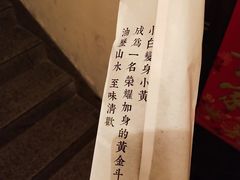 小白變身小黃
成為一名榮耀加身的黃金斗
油歷山水 至味清歡